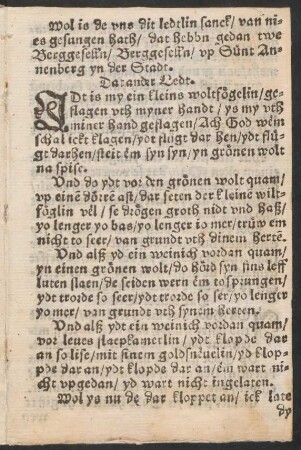 Wol is de vns dit ledtlin sanck/ van ni-
es gesungen hath/ dat hebbn gedan twe
Berggeselln/ Berggeselln/ vp Sünt An-
nenberg yn der Stadt.
Dat ander Ledt.
IDt is my ein kleins woltfögelin/ ge-
flagen vth myner handt / ys my vth
miner hand geflagen/ Ach God wem
schal ickt klagen/ ydt flügt dar hen/ ydt flü-
gt dar hen/ steit em syn syn/ yn grönen wolt
na spise.
Vnd do ydt vor den grönen wolt quam/
vp eine dörre ast/ dar seten der kleine wilt-
föglin vel/ se drögen groth nidt vnd haß/
yo lenger yo bas/ yo lenger io mer/ trüw em
nicht to seer/ van grundt vth dinem herte.
Vnd alß yd ein weinich vordan quam/
yn einen grönen wolt/ do hörd syn fins leff
luten slaen/ de seiden wern em tosprungen/
ydt trorde so seer/ ydt trorde so ser/ yo lenger
yo mer/ van grundt vth synem herten.
Vnd alß ydt ein weinich vordan quam/
vor leues slaepkamerlin/ ydt klopde dar
an so lise/ mit sinem goldsneuelin/ yd klop-
pde dar an/ ydt klopde dar an/ em wart ni-
cht vpgedan/ yd wart nicht ingelaten.
Wol ys nu de dar kloppet an/ ick late
dy